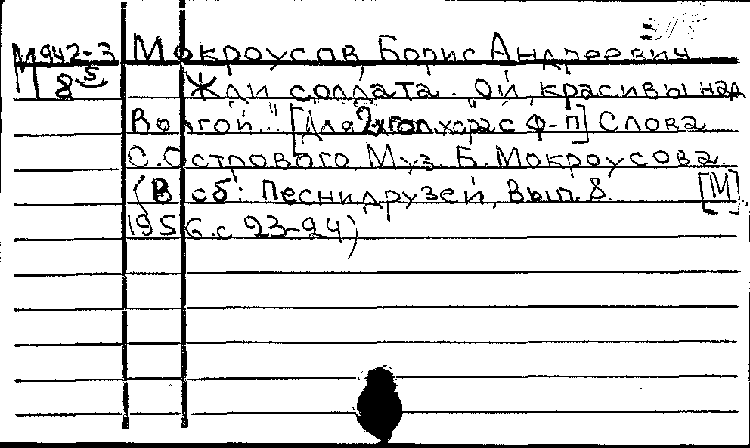 М 942-3 Мокроусов, Борис Андреевич
8 5 Жди солдата. "Ой, красивы над
Волгой..." [Для 2хгол. хора с ф-п] Слова
С. Острового. Муз. Б. Мокроусова
(В сб: Песни друзей, Вып. 8. [М]
1956. с 23-24)